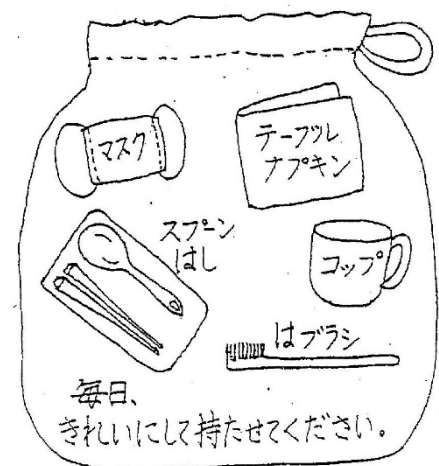 マスク
テーブル
ナプキン
スプーン
はし
コップ
はブラシ
毎日、
きれいにして持たせてください。